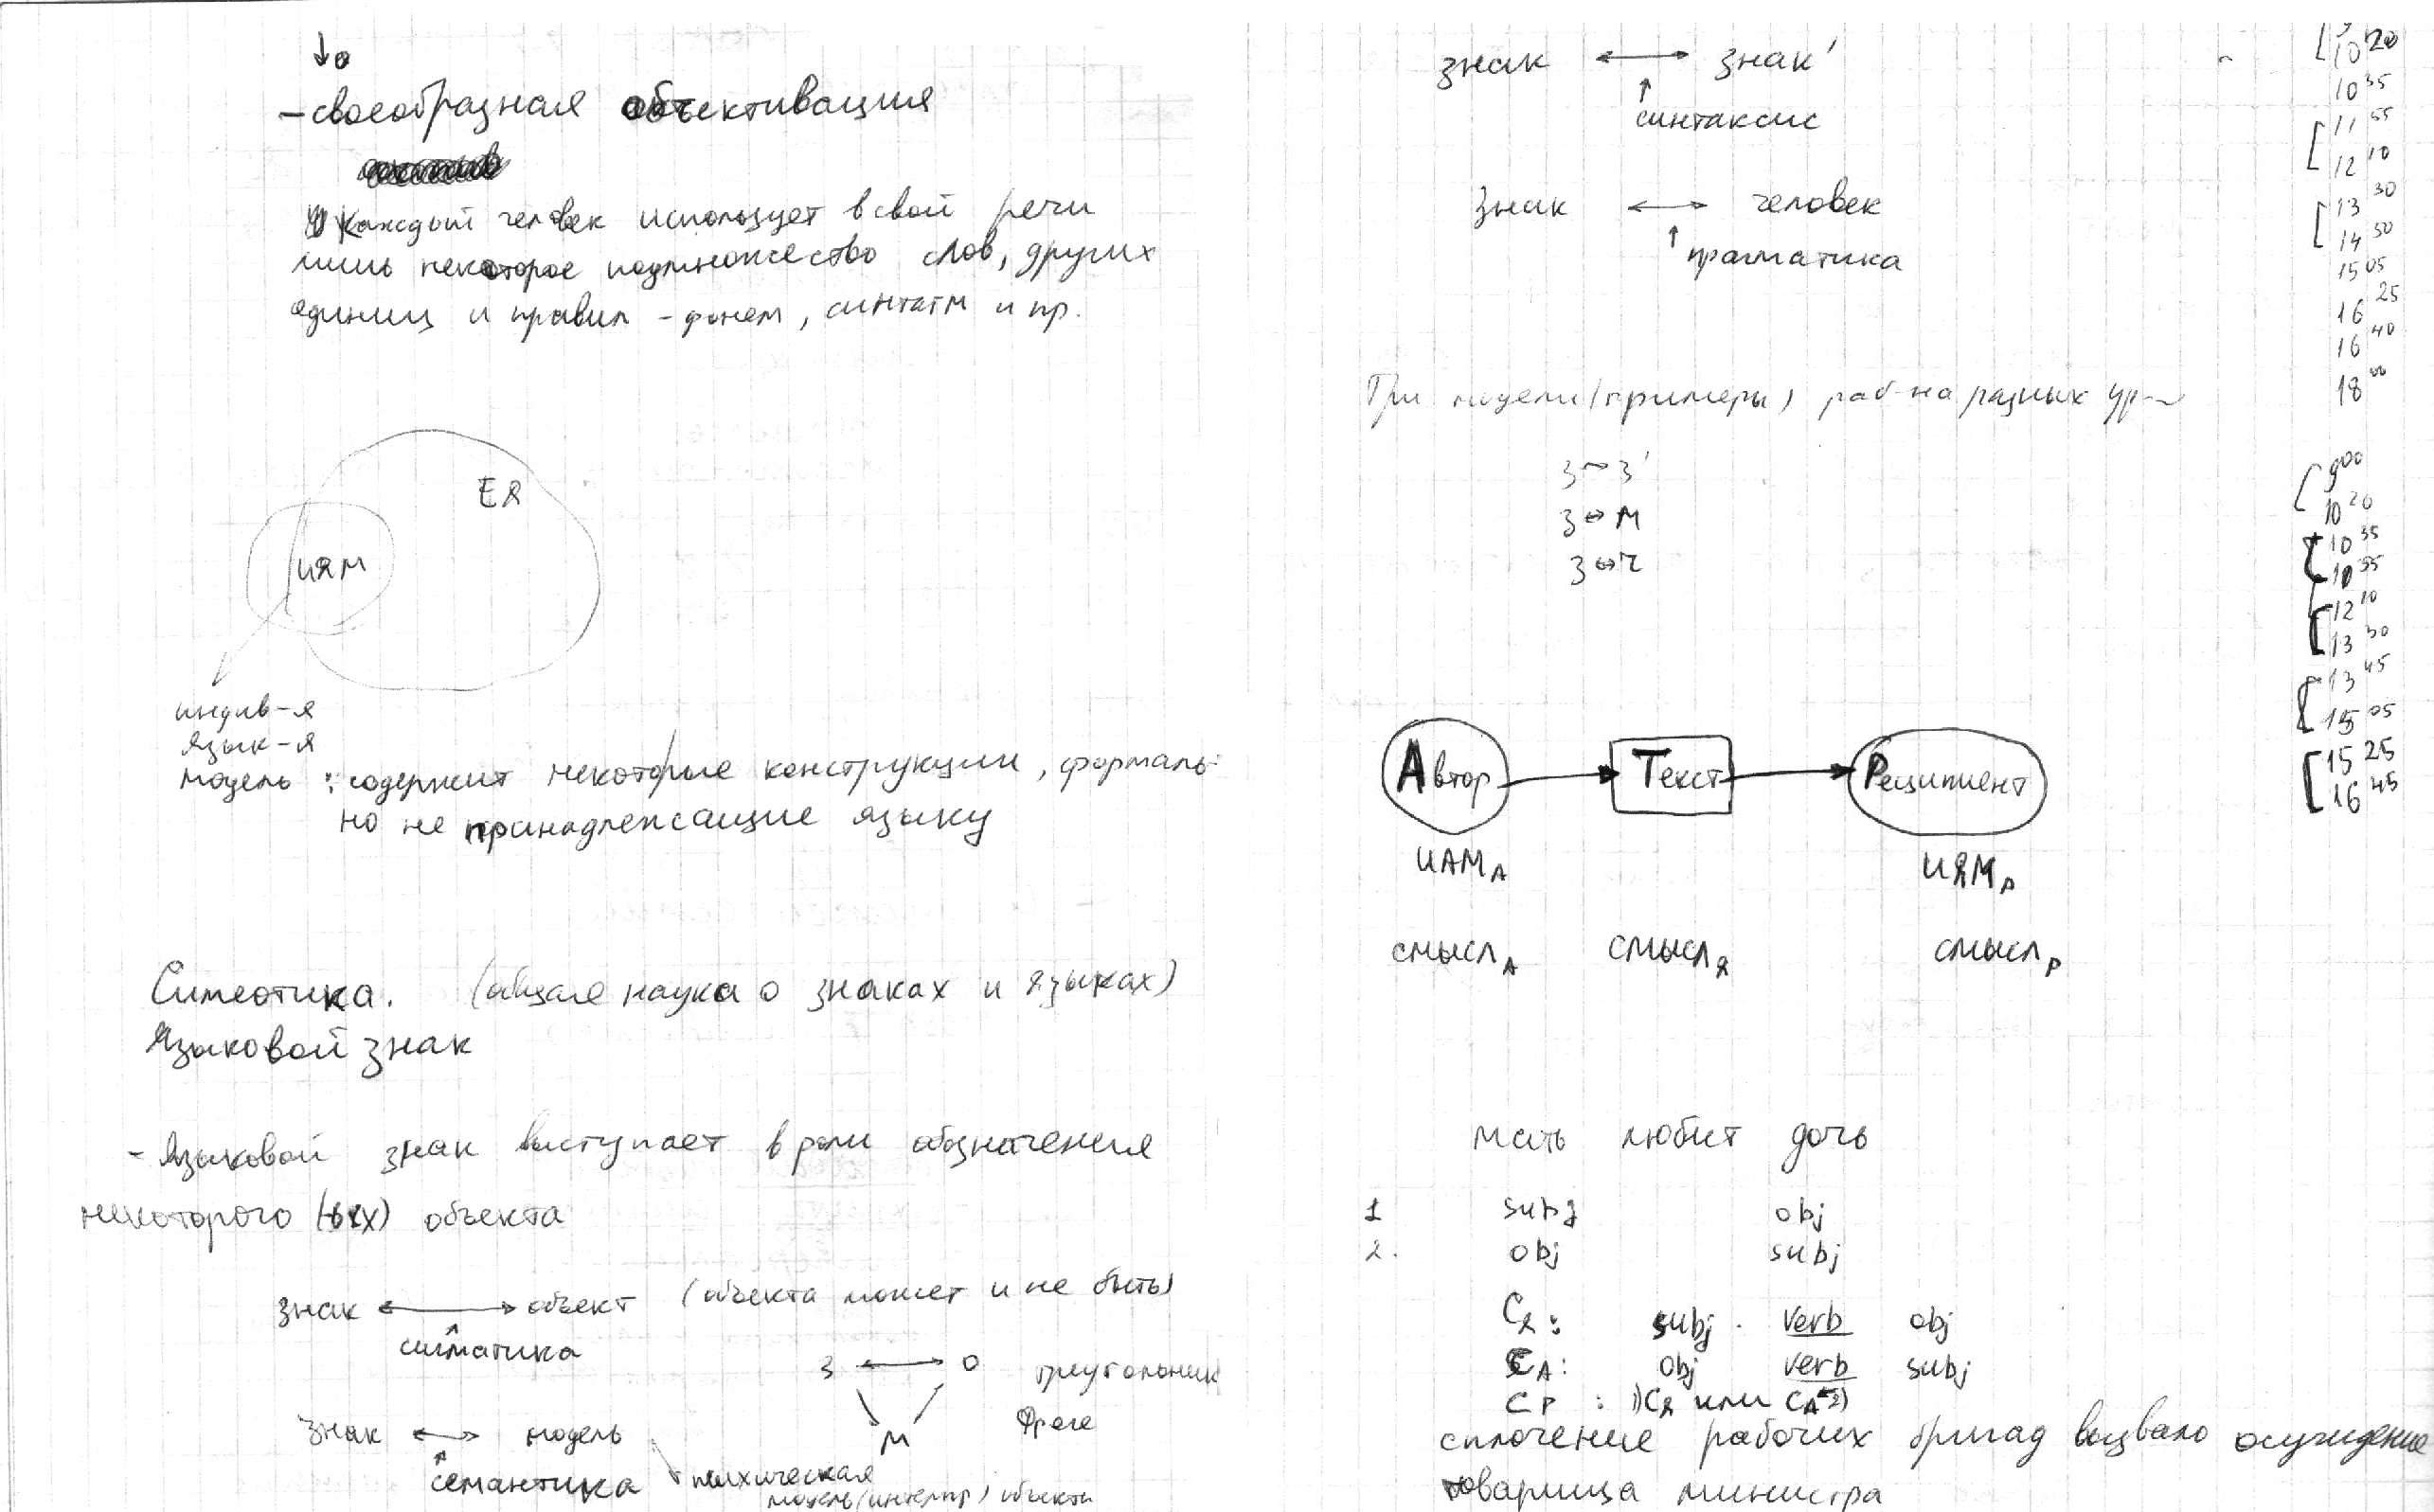 - своеобразная объективация
Каждый человек использует в свой речи
лишь некоторое подмножество слов, других
единиц и правил - фонем, синтагм и пр.
ЕЯ
ИЯМ
индив-я
язык-я
модель : содержит некоторые конструкции, формаль-
но не принадлежащие языку
Симеотика. (общая наука о знаках и языках)
Языковой знак
- Языковой знак выступает в роли обозначения
некоторого (-ых) объекта
знак ↔ объект (объекта может и не быть)
↑
сигматика
З ↔ О треугольник
Фреге
М
знак ↔ модель
↑
семантика
психическая
модель (интерпр) объекта
знак ↔ знак'
↑
синтаксис
знак ↔ человек
↑ прагматика
Три модели (примеры) раб- на разных ур-
З ~ З'
З ↔ М
З ↔ Ч
Автор → Текст → Реципиент
ИЯМ А ИЯМ Р
смысл А смысл Я смысл Р
мать любит дочь
1 subj obj
2. obj subj
С Я : subj verb obj
С А : obj verb subj
С Р : 1) С Я или С А 2)
сплочение рабочих бригад вызвало осуждение
товарища министра
10 20
10 35
11 55
12 10
13 30
14 50
15 05
16 25
16 40
18 00
9 00
10 20
10 35
10 55
12 10
13 30
13 45
15 05
15 25
16 45